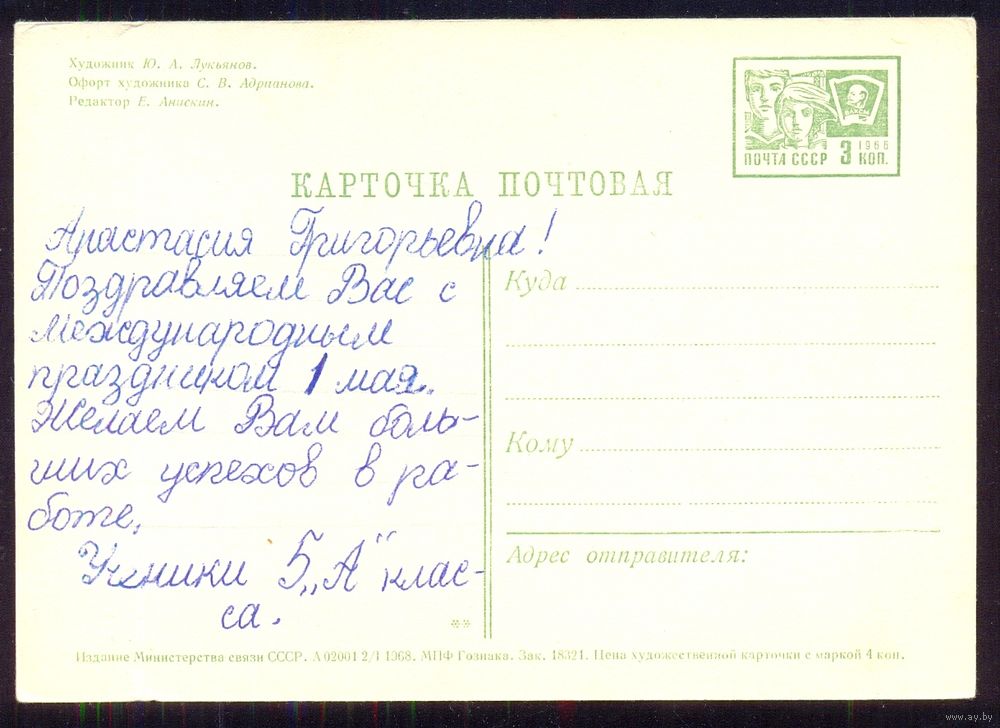 Художник Ю. А. Лукьянов.
Офорт художника С. В. Адрианова.
Редактор Е. Анискин.
1966
ПОЧТА СССР 3 КОП.
КАРТОЧКА ПОЧТОВАЯ
Анастасия Григорьевна!
Поздравляем Вас с
международным
праздником 1 мая.
Желаем Вам боль-
ших успехов в ра-
боте.
Ученики 5 „А" клас-
са.
Куда
Кому
Адрес отправителя:
Издание Министерства связи СССР. А 02001 2/I 1968. МПФ Гознака. Зак. 18321. Цена художественной карточки с маркой 4 коп.
www.ay.by